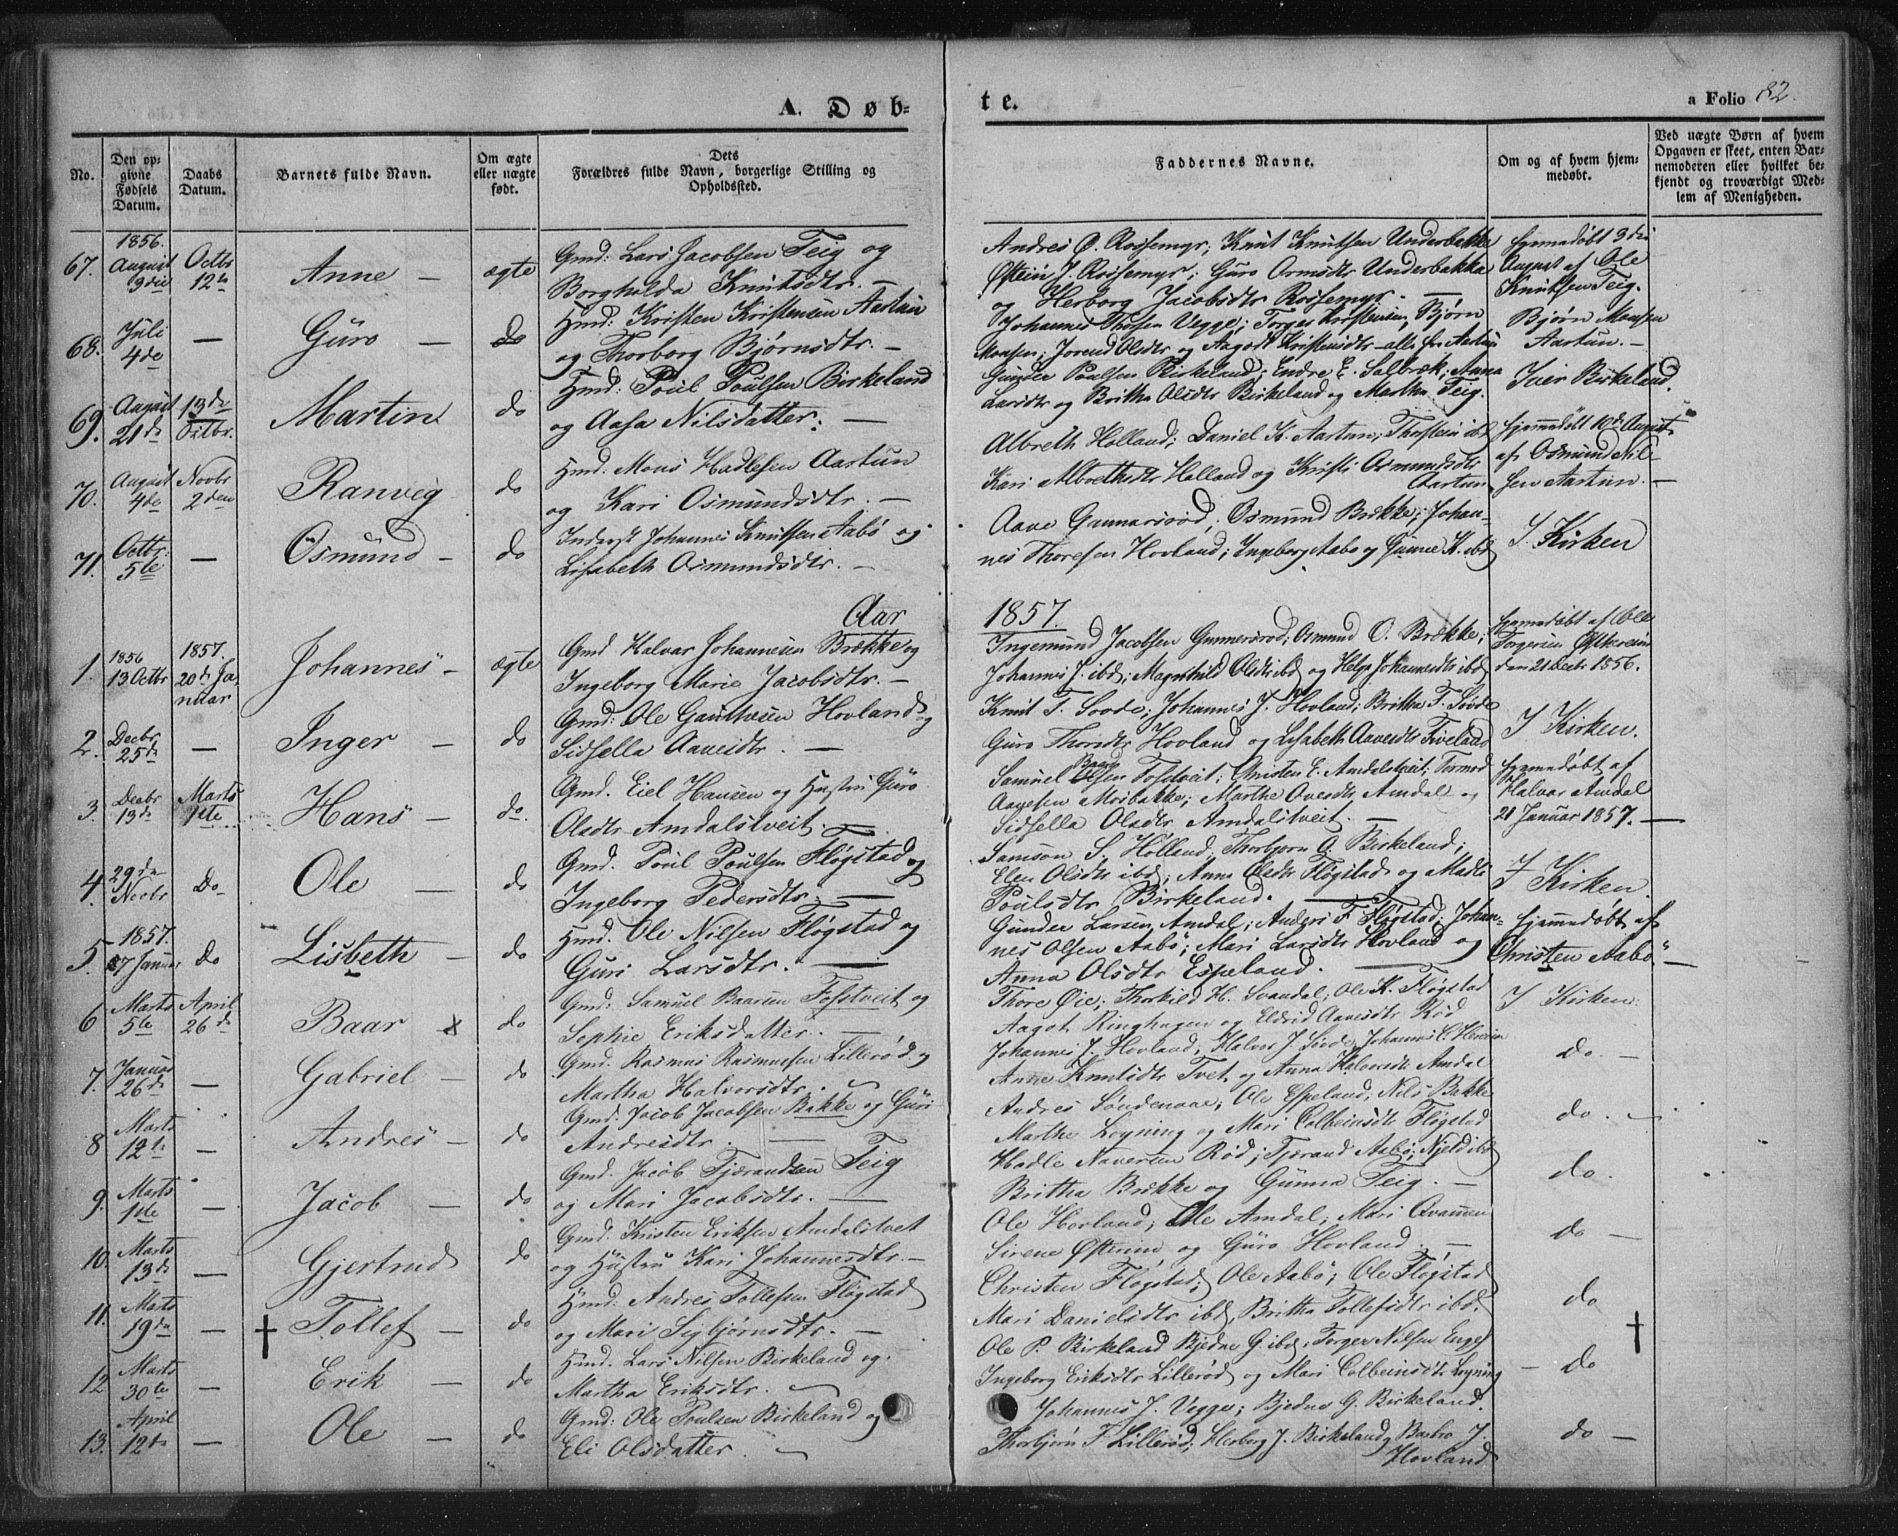 A. Døb-
te.
a Folio 82.
No.
Den op-
givne
Fødsels
Datum.
Daabs
Datum.
Barnets fulde Navn.
Om ægte
eller uægte
født.
Dets
Forældres fulde Navn, borgerlige Stilling og
Opholdssted.
Faddernes Navne.
Om og af hvem hjem-
medøbt.
Ved uægte Børn af hvem
Opgaven er skeet, enten Bar-
nemoderen eller hvilket be-
kjendt og troværdigt Med-
lem af Menigheden.
67. 1856. August 9die Octbr 12te Anne — ægte
Gmd: Lars Jacobsen Teig og
Borghilda Knutsdtr. —
Andres O. Rossemyr; Knut Knutsen Underbakke
Østein J. Rossemyr; Guro Ormsdtr Underbakka
og Herborg Jacobsdtr Rossemyr. —
hjemmedøbt 9de
August af Ole
Knutsen Teig.
68. Juli 4de — Guro — Do
Hmd: Kristen Kristensen Aartun
og Thorborg Bjørnsdtr. —
Johannes Vegge; Torges Kristensen, Bjørn
Monsen; Jorend Olsdtr og Aagodt Kristensdtr alle fra Aartun
Bjørn Monsen
Aartun. —
69. August 21de 13de Octbr. Martin do
Hmd: Poul Poulsen Birkeland
og Aasa Nilsdatter. —
Gunder Poulsen Birkeland; Endre E. Salbræk; Anna
Larsdtr og Britha Olsdtr Birkeland og Martha Teig.
Iver Birkeland.
70. August 4de Novbr 2den Ranveig do
Hmd: Mons Hadlesen Aartun
og Kari Osmundsdtr. —
Albreth Holland; Daniel K. Aartun; Thorstein ibd
Kari Albrethsdtr Holland og Kristi Osmundsdtr
Aartun
hjemmedøbt 10de August
af Osmund Nil-
sen Aartun. —
71. Octbr. 5te — Osmund — do
Inderst Johannes Knutsen Aabø og
Lisabeth Osmundsdtr. —
Aave Gunnarsrød; Osmund Brække; Johan-
nes Thoresen Hovland; Ingeborg Aabø og Gunne K. ibd
I Kirken
Aar 1857.
1. 1856 13 Octbr 1857. 20de Ja- nuar Johannes — ægte
Gmd Halvar Johannesen Brække og
Ingeborg Marie Jacobsdtr. —
Ingemund Jacobsen Gunnersrod; Osmund O. Brække;
Johannes J. ibd; Magnhild Olsdtr ibd og Helge Johannesdtr ibd
hjemmedøbt af Ole
Torgersen
den 21 Decbr 1856.
2. Decbr 25de — Inger — do
Gmd: Ole Gauthesen Hovland og
Sidsella Aavesdtr. —
Knut T. Sovde; Johannes J. Hovland; Britha T. Søvde
Guro Thorsdtr Hovland og Lisabeth Aavesdtr Tiveland
I Kirken.
3. Decbr 13de Marts 1ste Hans — do.
Gmd. Eiel Hansen og Hustru Guro
Olsdtr Amdalstveit. —
Samuel Baar Olsen Fosstveit; Christen E. Amdalstveit; Tormod
Aagesen Mosbakke; Marthe Ovesdtr Amdal og
Sidsella Olsdtr Amdalstveit. —
hjemmedøbt af
Halvar Amdal
21 Januar 1857. —
4. 29de Novbr Do Ole — do
Gmd. Poul Poulsen Fløgstad og
Ingeborg Pedersdtr. —
Samson S. Holland, Thorbjorn O. Birkeland;
Elen Olsdtr ibd; Anne Olsdtr Fløgstad og Madle
Poulsdtr Birkeland.
I Kirken
5. 1857. 27 Januar do Lisbeth — do
Hmd. Ole Nilsen Fløgstad og
Guri Larsdtr. —
Gunder Larsen Amdal; Anders T. Fløgstad; Johan-
nes Olsen Aabø; Mari Larsdtr Hovland og
Anna Olsdtr Espeland. —
hjemmedøbt af
Christen Aabø. —
6 Marts 5te April 26de Baar — x do
Gmd: Samuel Baarsen Fosstveit og
Sophie Eriksdatter. —
Thore Øie; Thorkild H. Svandal; Ole K. Fløgstad
Aagot Ringhagen og Eldrid Aavesdtr Rød
I Kirken.
7. Januar 26de — Gabriel — do
Gmd. Rasmus Rasmussen Lillerød og
Martha Halvorsdtr.
Johannes J. Hovland; Halvor J. Søvde; Johannes
Anne Knutsdtr Tvet og Anna Halvorsdtr Amdal
do. —
8 Marts 12te — Andres — do
Gmd. Jacob Jacobsen Bakke og Guri
Andresdtr. —
Andres Søndenaae; Ole Espeland; Nils Bakke
Marthe Løyning og Mari Colbeinsdtr Fløgstad
do. —
9. Marts 1ste — Jacob — do
Gmd. Jacob Tjerandsen Teig
og Mari Jacobsdtr. —
Hadle Naversen Rød; Tjerand Aabø; Njeld ibd
Britha Bakke og Gunna Teig. —
do.
10. Marts 13de — Gjertrud do
Gmd. Kristen Eriksen Amdalstvet
og Hustru Kari Johannesdtr. —
Ole Hovland; Ole Amdal; Mari Qvamen
Sirene og Guro Hovland. —
do —
11. Marts 19de — † Tollef — do
Hmd. Andres Tollefsen Fløgstad
og Mari Sigbjørnsdtr. —
Christen Fløgstad; Ole Aabø; Ole Fløgstad
Mari Danielsdtr ibd, Britha Tollefsdtr ibd.
do †
12 Marts 30te — Erik — do
Hmd. Lars Nilsen Birkeland og
Martha Eriksdtr. —
Ole P. Birkeland Bjedne G. ibd, Torger Nilsen Enge
Ingeborg Eriksdtr Lillerød og Mari Colbeinsdtr Løyning
— do
13. April 12te — Ole — do
Gmd: Ole Poulsen Birkeland og
Eli Olsdatter. —
Johannes J. Vegge; Bjedne G. Birkeland.
Thorbjørn T. Lillerød; Herborg J. Birkeland og Barbro J.
Hovland
do —